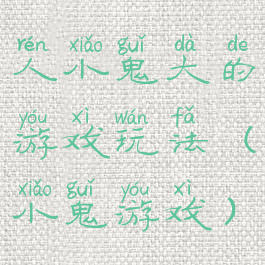 rén xiǎo guǐ dà de
人小鬼大的
yóu xì wán fǎ
游戏玩法（
xiǎo guǐ yóu xì
小鬼游戏）